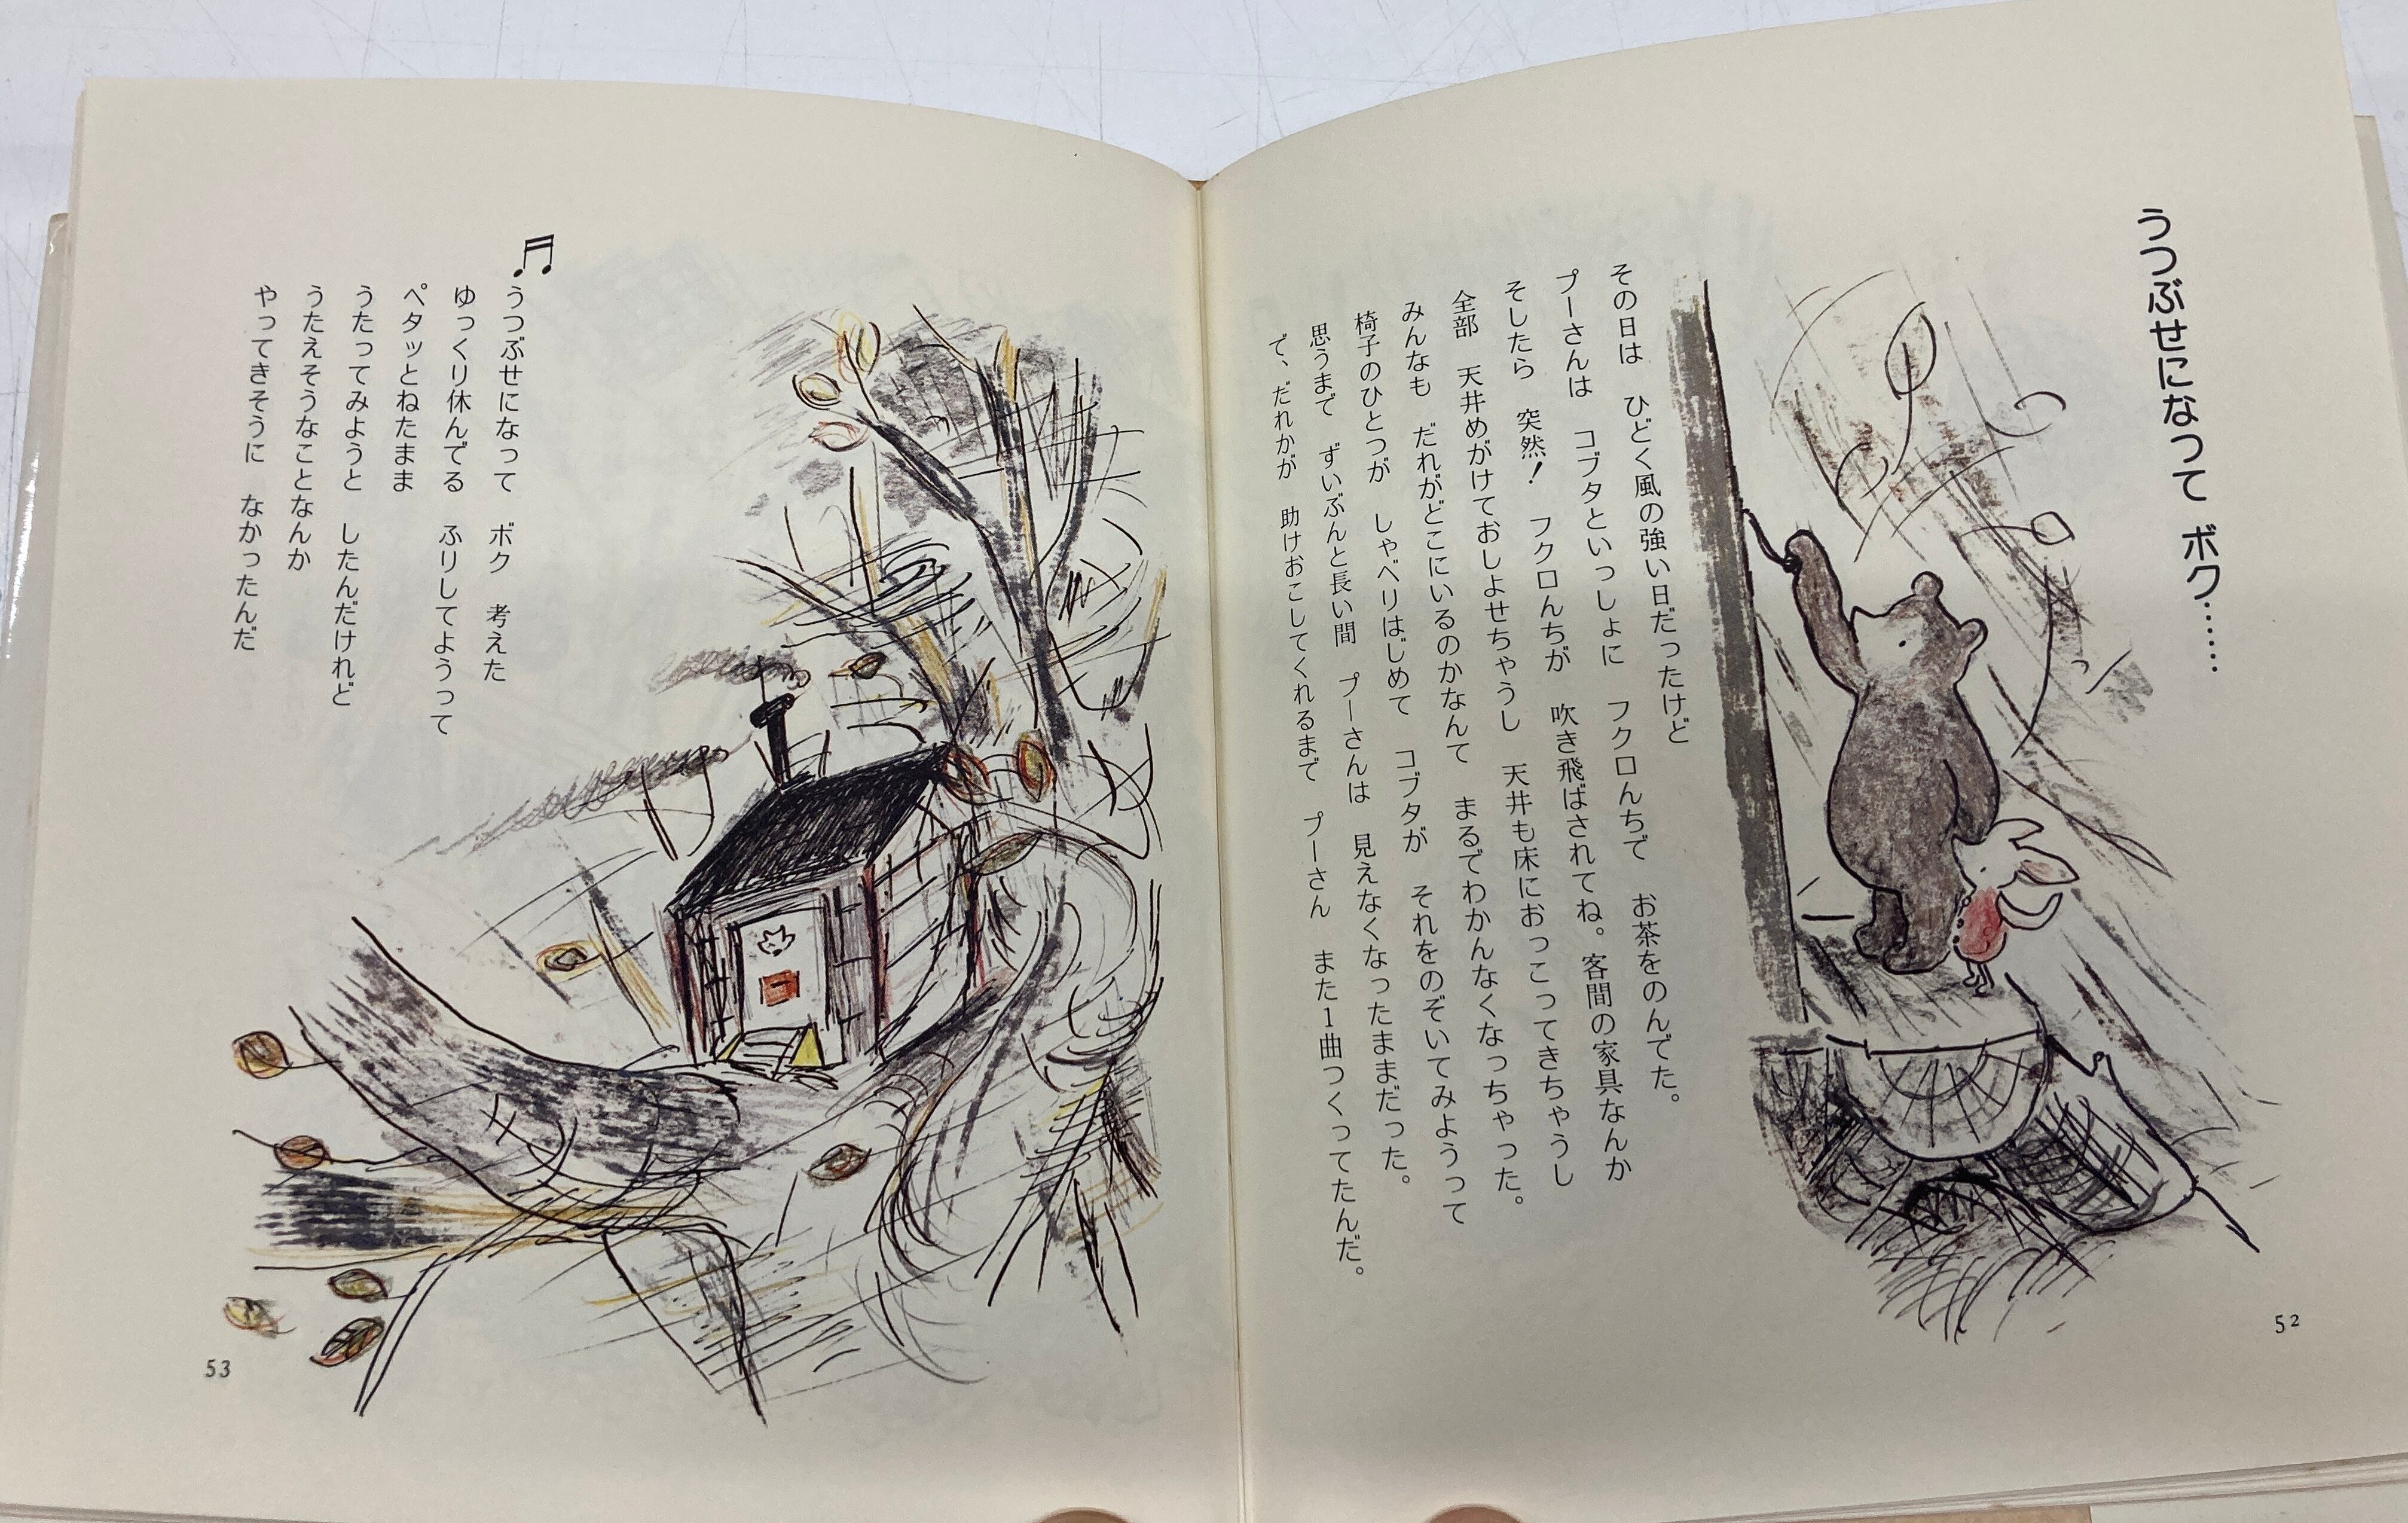 うつぶせになって ボク……
その日は ひどく風の強い日だったけど
プーさんは コブタといっしょに フクロんちで お茶をのんでた。
そしたら 突然! フクロんちが 吹き飛ばされてね。客間の家具なんか
全部 天井めがけておしよせちゃうし 天井も床におっこってきちゃうし
みんなも だれがどこにいるのかなんて まるでわかんなくなっちゃった。
椅子のひとつが しゃべりはじめて コブタが それをのぞいてみようって
思うまで ずいぶんと長い間 プーさんは 見えなくなったままだった。
で、だれかが 助けおこしてくれるまで プーさん また1曲つくってたんだ。
52
うつぶせになって ボク 考えた
ゆっくり休んでる ふりしてようって
ペタッとねたまま
うたってみようと したんだけれど
うたえそうなことなんか
やってきそうに なかったんだ
53